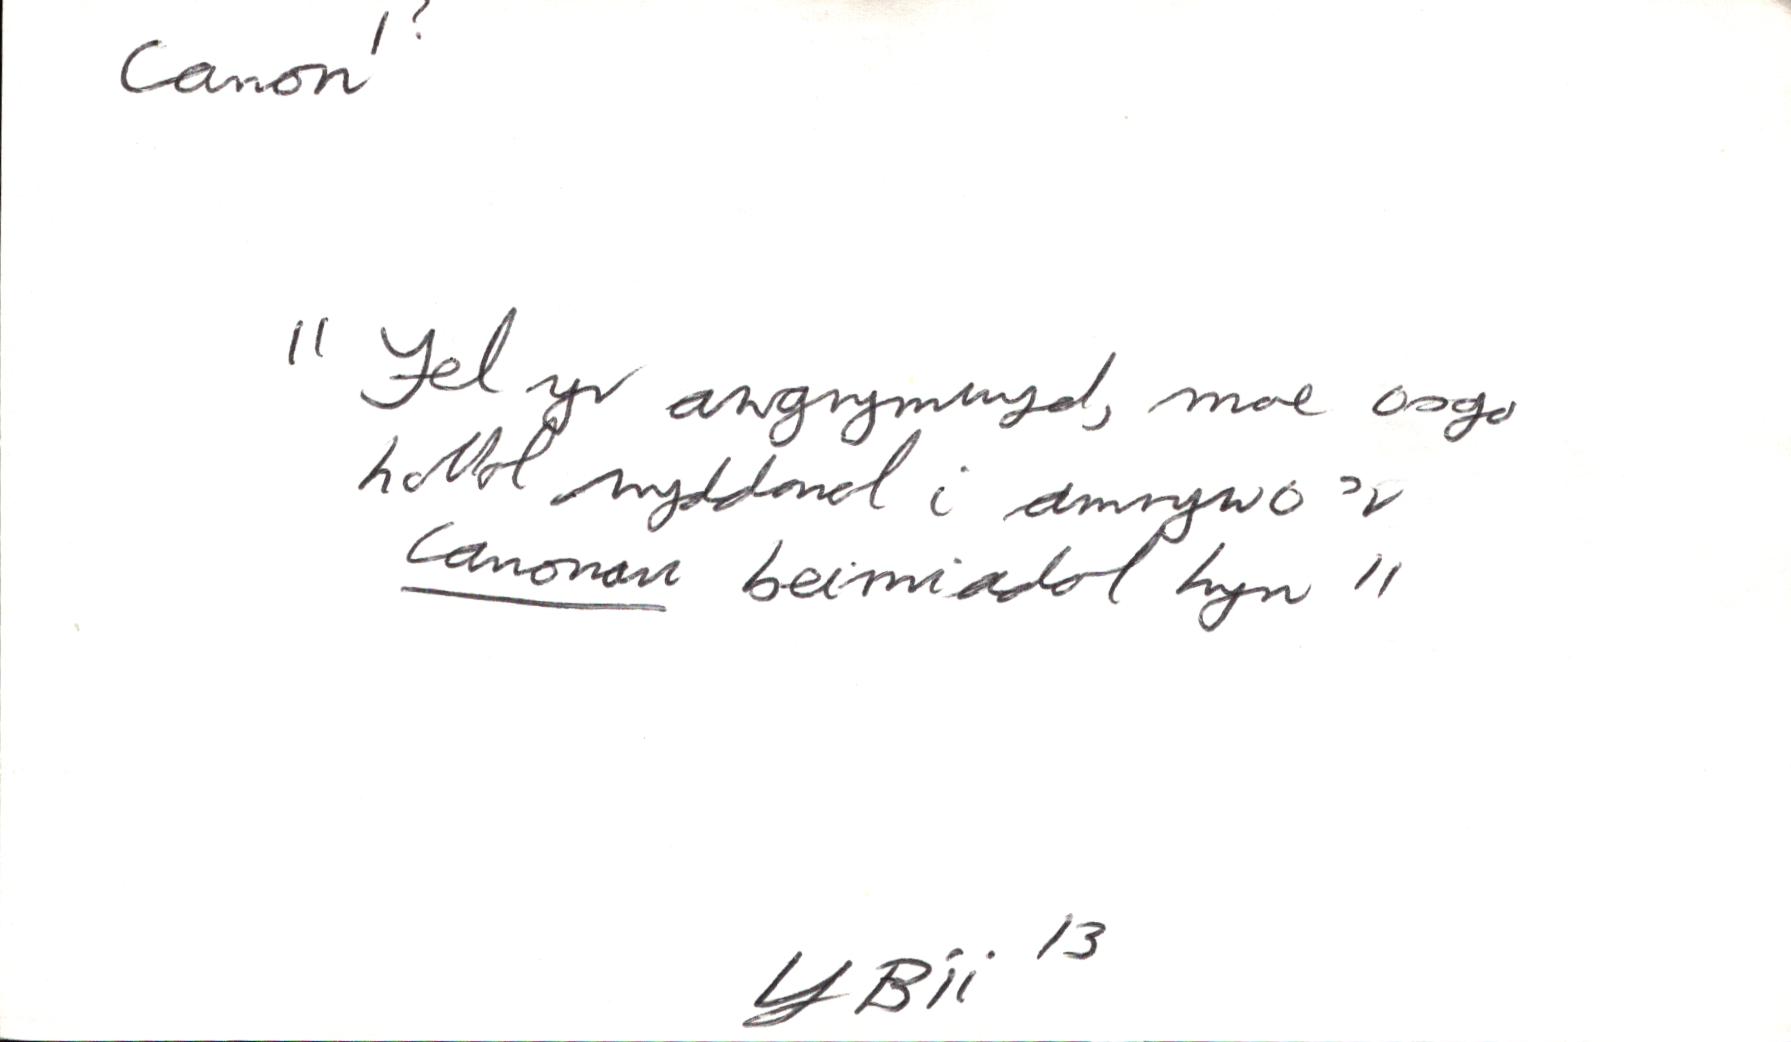 Canon¹?
"Fel yr awgrymwyd, mae osgo
hollol wyddonol i amryw o'r
Canonau beirniadol hyn"
YBii 13